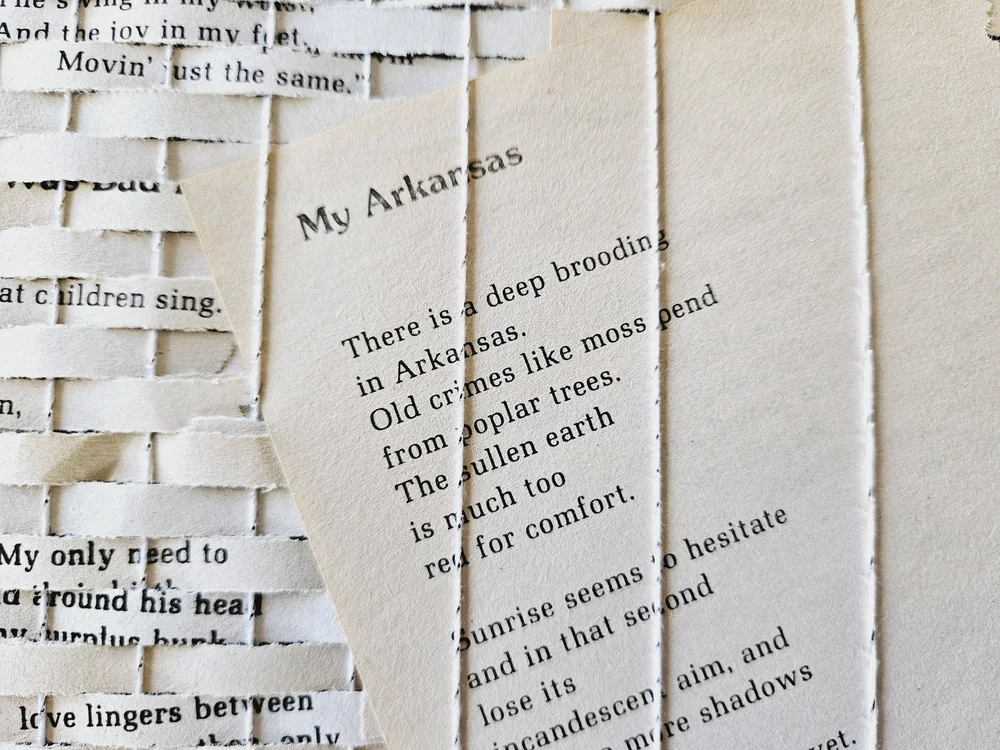 And the joy in my feet,
Movin' just the same."
at children sing.
n,
My only need to
around his head
love lingers between
only
My Arkansas
There is a deep brooding
in Arkansas.
Old crimes like moss pend
from poplar trees.
The sullen earth
is much too
red for comfort.
Sunrise seems to hesitate
and in that second
lose its
incandescent aim, and
more shadows
yet.